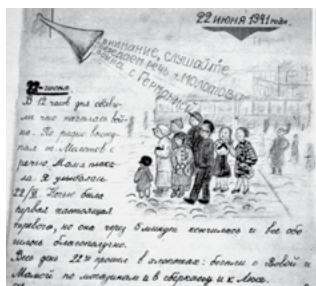 22 июня 1941 года.
Внимание, слушайте,
передаем речь т. Молотова
Война с Германией!
22-июня.
В 12 часов дня объяви-
ли что началась вой-
на. По радио высту-
пал т. Молотов с
речью. Мама плака-
ла. Я улыбалась
22/VI. Ночью была
первая настоящая
тревога, но она через 5 минут кончилась и все обо
шлось благополучно.
Весь день 22го прошел в хлопотах: бегали с Вовой и
Мамой по магазинам и в сберкассу и к Люсе.